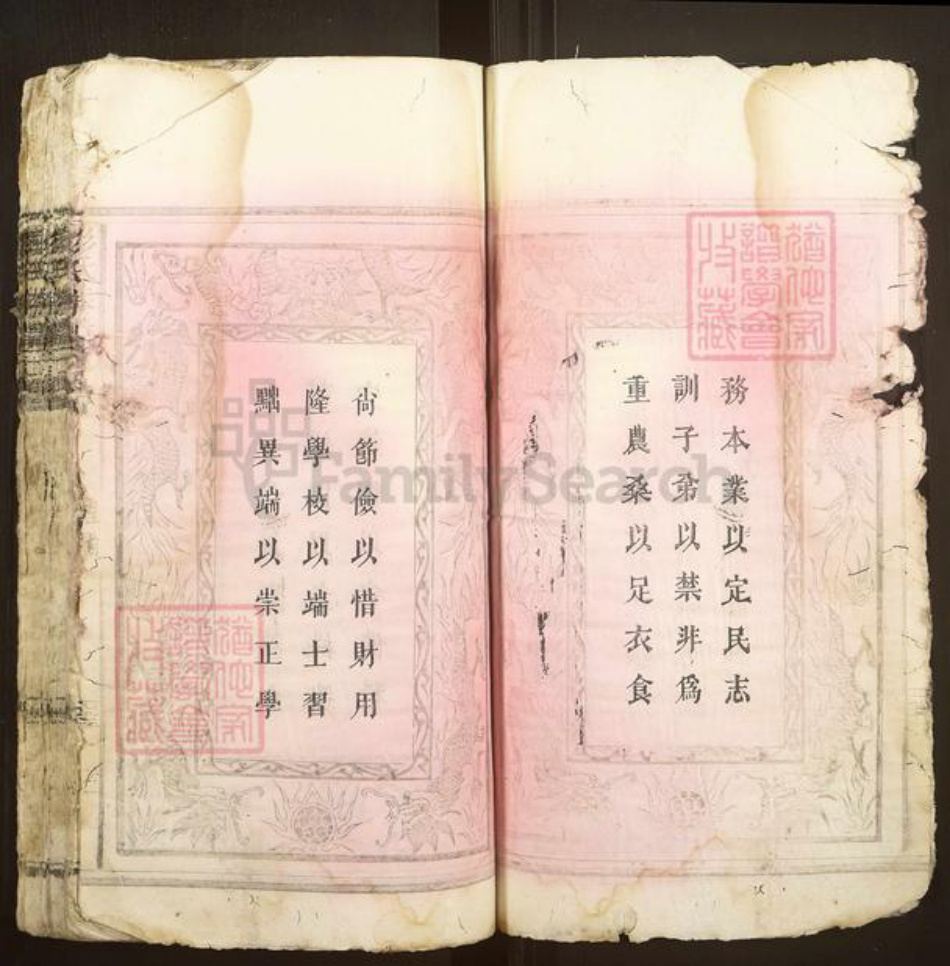 務本業以定民志
訓子弟以禁非爲
重農桑以足衣食
尙節儉以惜財用
隆學校以端士習
黜異端以崇正學
猶他家
譜學會
收藏
猶他家
譜學會
收藏
FamilySearch